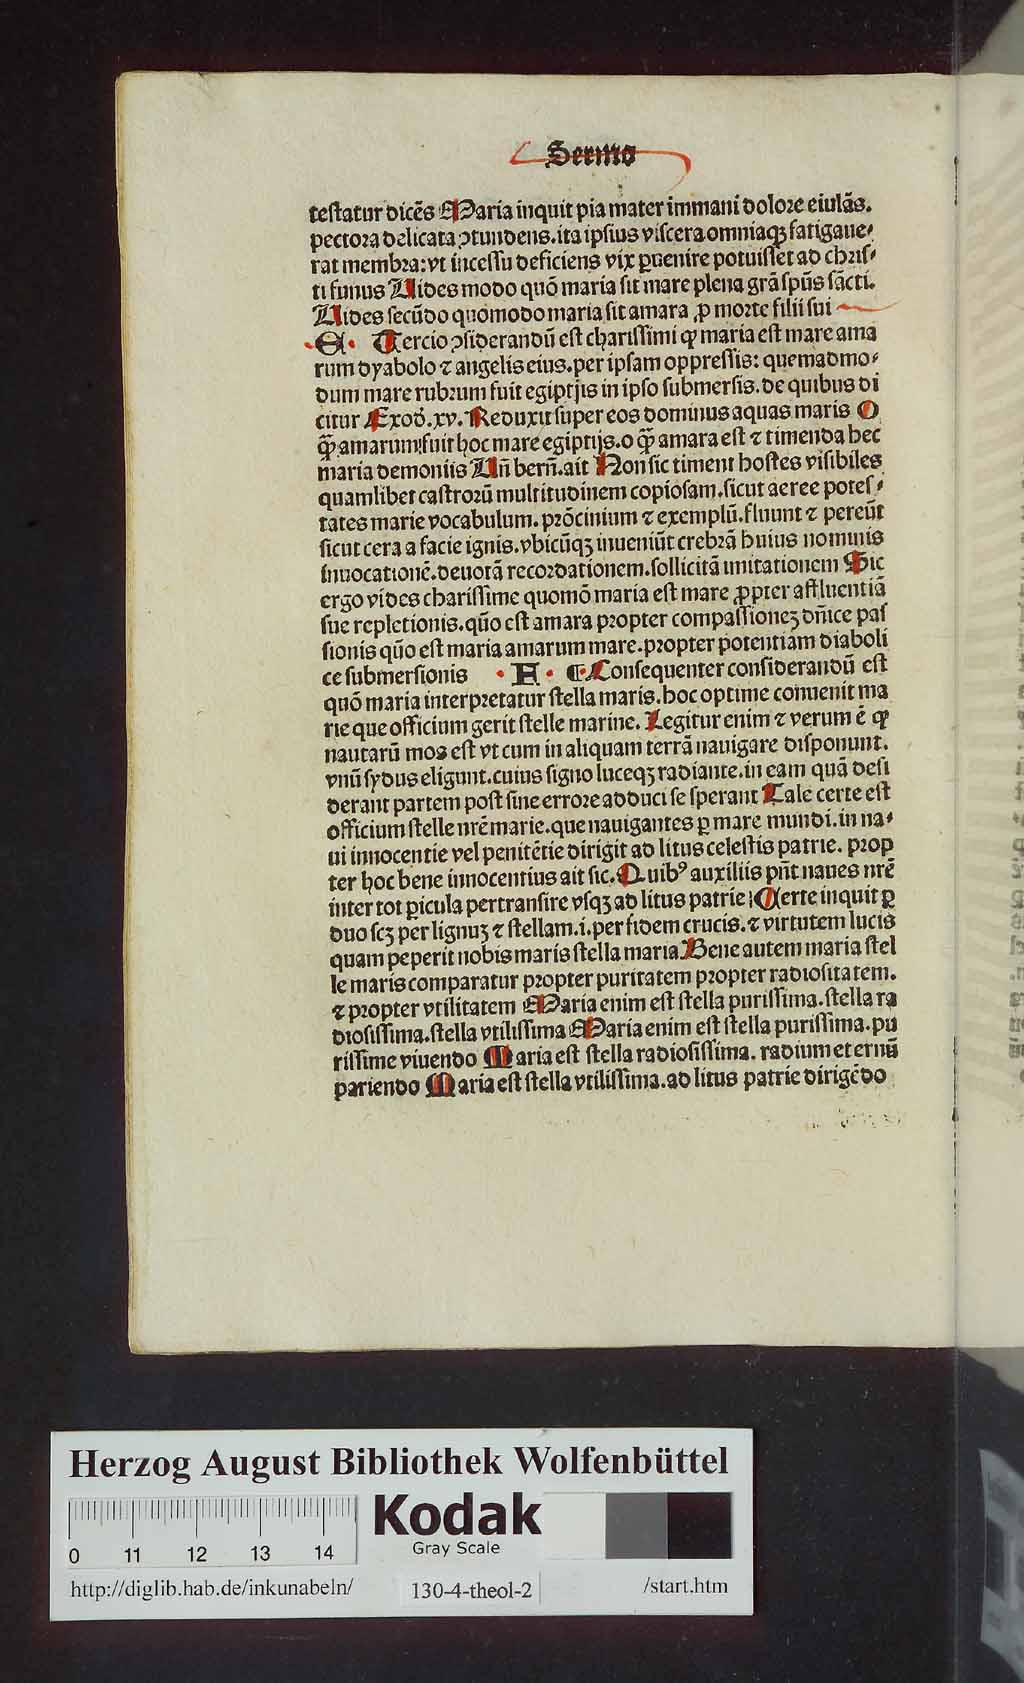 Sermo
testatur dicēs Maria inquit pia mater immani dolore eiulās.
pectora delicata ꝯtundens. ita ipsius viscera omniaqꝫ fatigaue⸗
rat membra: vt incessu deficiens vix ꝑuenire potuisset ad chris⸗
ti funus Uides modo quō maria sit mare plena grā spūs sācti.
Uides secūdo quomodo maria sit amara ꝓ morte filii sui
G. Tercio ꝯsiderandū est charissimi qꝙ maria est mare ama
rum dyabolo ⁊ angelis eius. per ipsam oppressis: quemadmo⸗
dum mare rubrum fuit egiptijs in ipso submersis. de quibus di
citur Exod̄. xv. Reduxit super eos dominus aquas maris O
qꝫ̄ amarum fuit hoc mare egiptijs. o qꝫ̄ amara est ⁊ timenda hec
maria demoniis Un̄ bern̄. ait Non sic timent hostes visibiles
quamlibet castrorū multitudinem copiosam. sicut aeree potes⸗
tates marie vocabulum. prōcinium ⁊ exemplū. fluunt ⁊ pereūt
sicut cera a facie ignis. vbicūqꝫ inueniūt crebrā huius nominis
inuocationē. deuotā recordationem. sollicitā imitationem Sic
ergo vides charissime quomō maria est mare ꝓpter affluentiā
sue repletionis. quō est amara propter compassionez dn̄ice pas
sionis quō est maria amarum mare. propter potentiam diaboli
ce submersionis . H . ¶ Consequenter considerandū est
quō maria interpretatur stella maris. hoc optime conuenit ma
rie que officium gerit stelle marine. Legitur enim ⁊ verum ē ꝙ
nautarū mos est vt cum in aliquam terrā nauigare disponunt.
vnū sydus eligunt. cuius signo luceqꝫ radiante. in eam quā desi
derant partem post sine errore adduci se sperant Tale certe est
officium stelle nrē marie. que nauigantes ꝑ mare mundi. in na⸗
ui innocentie vel penitētie dirigit ad litus celestis patrie. prop
ter hoc bene innocentius ait sic. Quibꝰ auxiliis pn̄t naues nrē
inter tot ꝑicula pertransire vsqꝫ ad litus patrie Certe inquit ꝑ
duo scꝫ per lignuꝫ ⁊ stellam. i. per fidem crucis. ⁊ virtutem lucis
quam peperit nobis maris stella maria Bene autem maria stel
le maris comparatur propter puritatem propter radiositatem.
⁊ propter vtilitatem Maria enim est stella purissima. stella ra
diosissima. stella vtilissima Maria enim est stella purissima. pu
rissime viuendo Maria est stella radiosissima. radium eternū
pariendo Maria est stella vtilissima. ad litus patrie dirigēdo
Herzog August Bibliothek Wolfenbüttel
Kodak
Gray Scale
0 11 12 13 14
http://diglib.hab.de/inkunabeln/ 130-4-theol-2 /start.htm